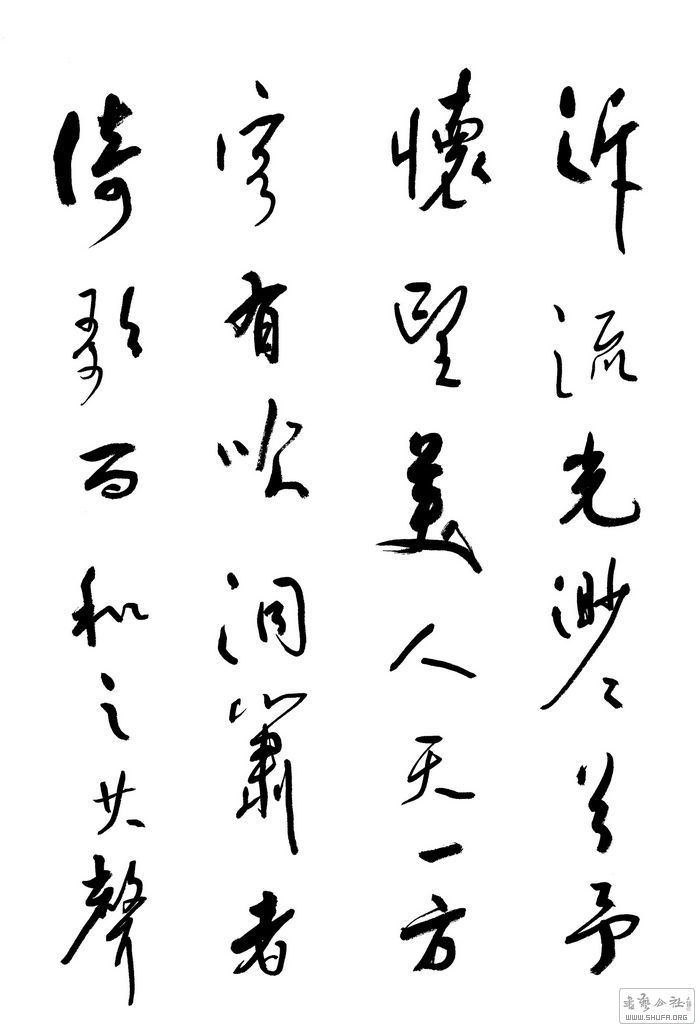 泝流光渺々兮予
懷望美人天一方
客有吹洞簫者
倚歌而和之其聲
書藝公社
WWW.SHUFA.ORG